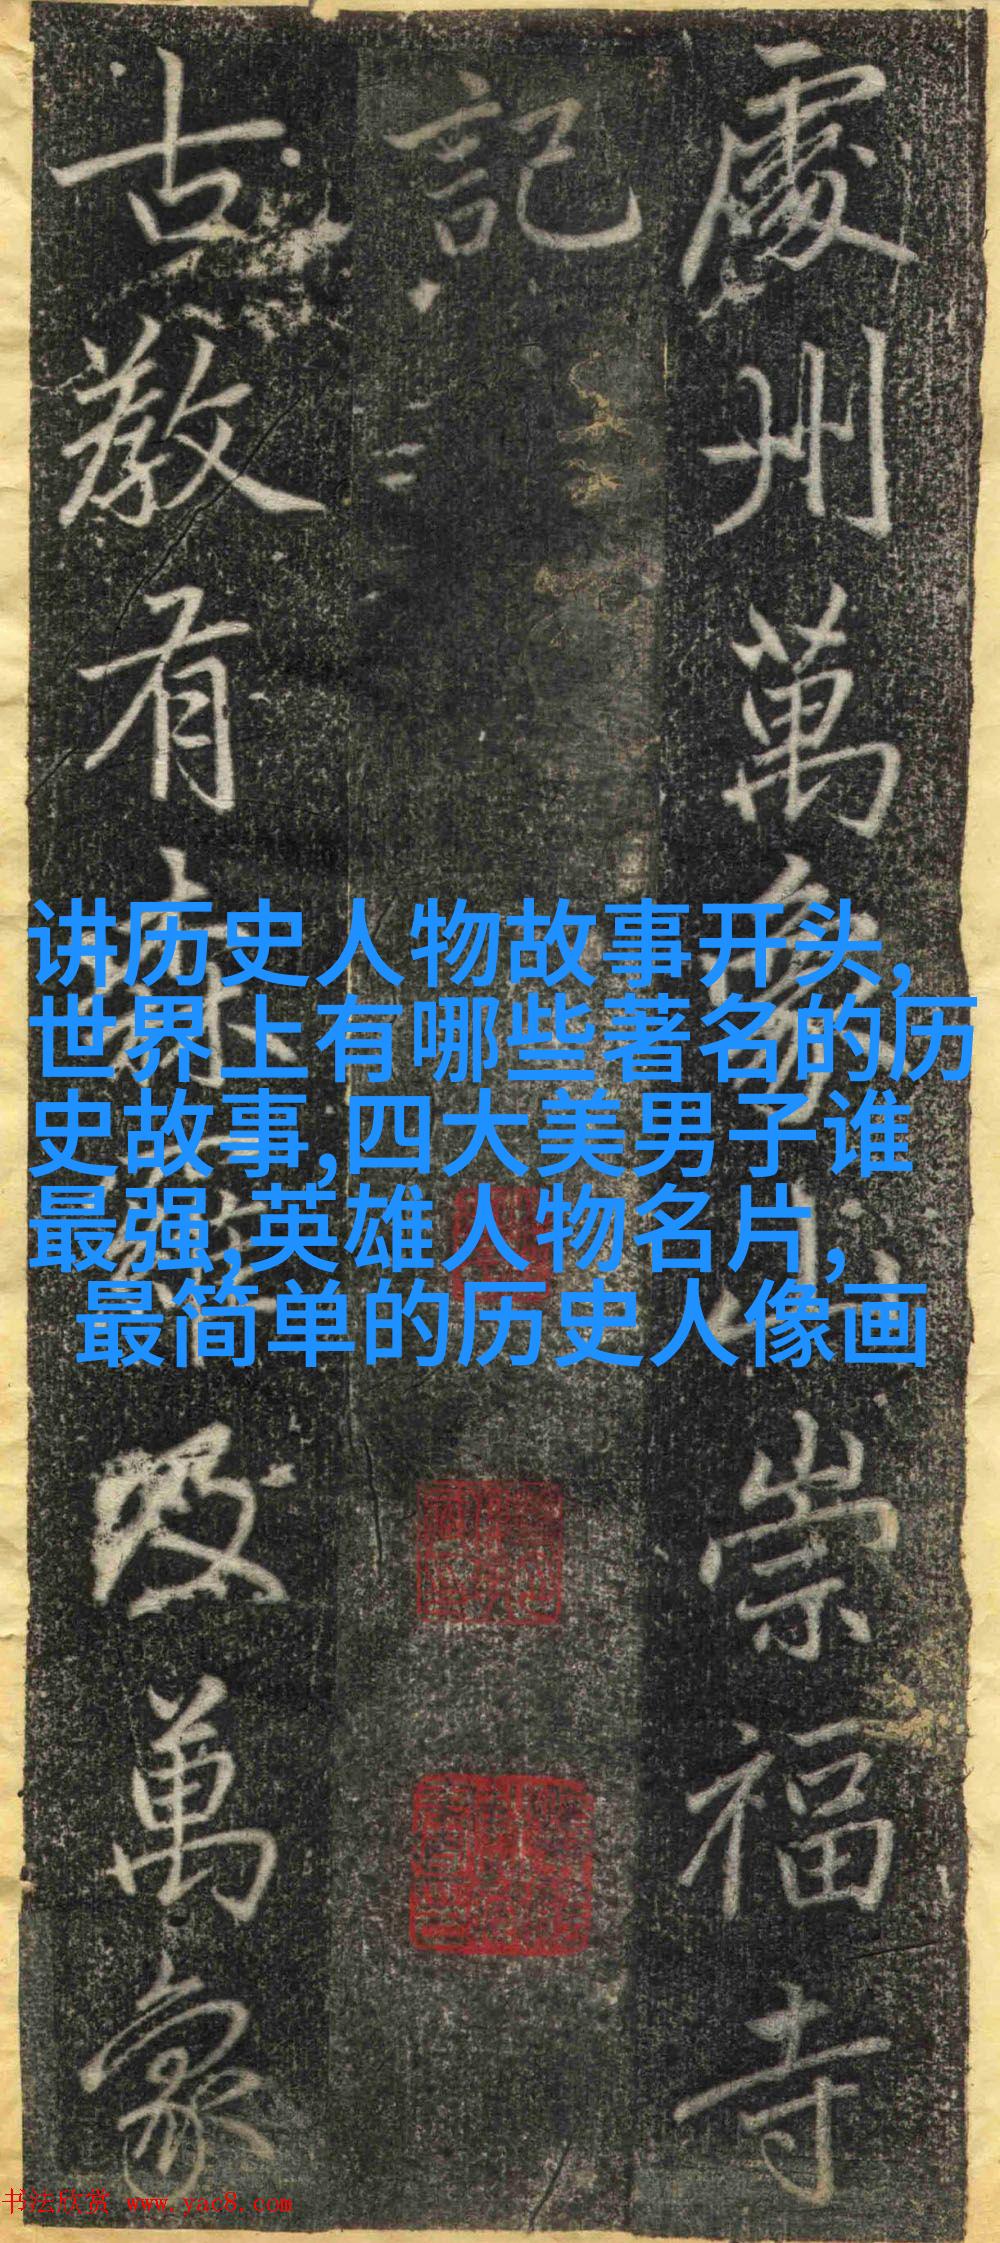 處州萬象山崇福寺
記
古教有
及萬象
讲历史人物故事开头,
世界上有哪些著名的历
史故事,四大美男子谁
最强,英雄人物名片,
最简单的历史人像画
书法欣赏 www.yac8.com